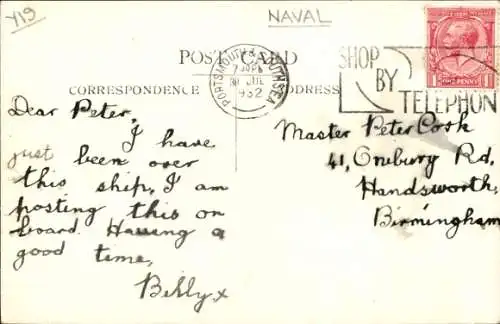 Y19
NAVAL
POST CARD
CORRESPONDENCE
ADDRESS
PORTSMOUTH & SOUTHSEA
JUL
1932
SHOP
BY
TELEPHON
ONE PENNY
Dear Peter,
I have
just been over
this ship, I am
posting this on
board. Having a
good time,
Billy x
Master Peter Cook
41, Onibury Rd,
Handsworth,
Birmingham